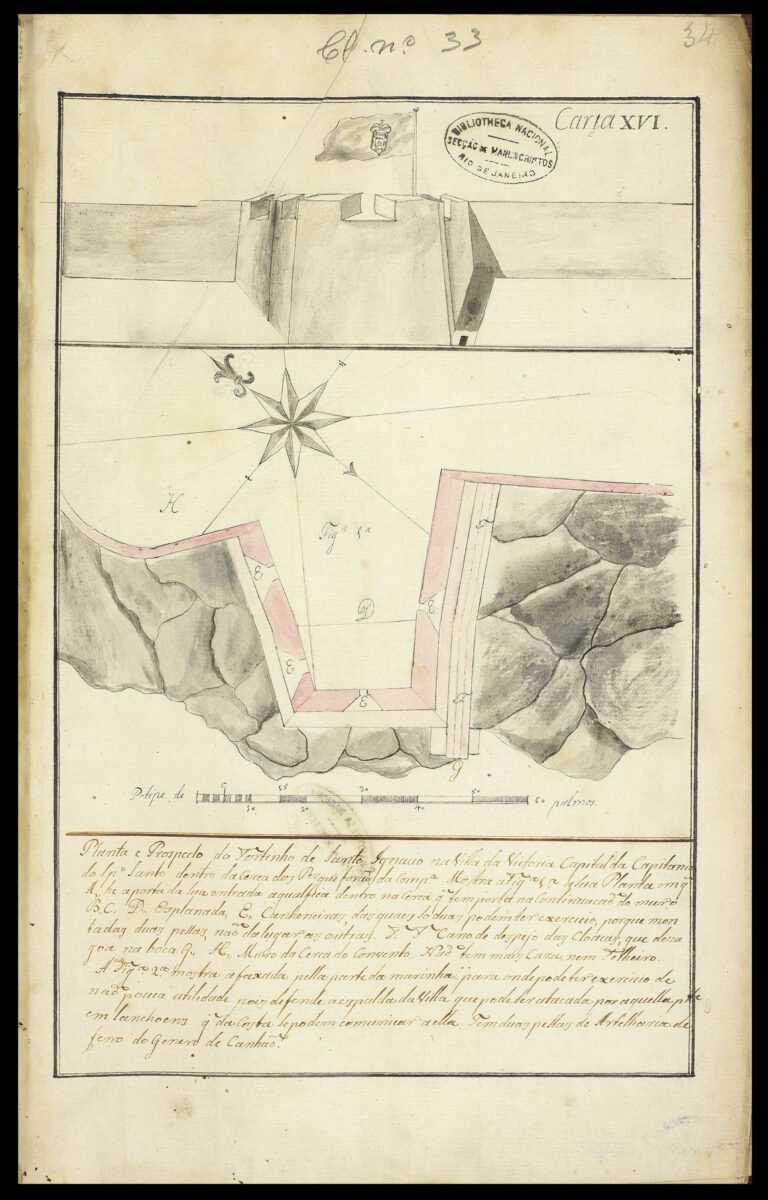 Cl. nº 33
34
Carta XVI.
BIBLIOTHECA NACIONAL
SECÇÃO DE MANUSCRIPTOS
RIO DE JANEIRO
H
Figª 1ª
F
E
D
E
E
E
F
G
Petipe de 5 10 15 20 30 40 50 60 palmos.
Planta e Prospecto do Fortinho de Santo Ignacio na Villa da Victoria Capital da Capitania
do Spº Santo dentro da Cerca dos Pes que forão da Compª Mostra a Figª 1ª a sua Planta em q̃
A, he a porta de sua entrada a qual fica dentro na Cerca q̃ tem porta na Continuacaõ do muro
B.C. D, Esplanada, E, Canhoneiras, das quaes só duas podem ter exercicio, porque mon
tadas duas pessas, naõ da lugar as outras. F. F. Cano de despejo das Cloacas, que deza
goa na boca G, H, Muro da Cerca do Convento. Naõ tem mais Caza, nem Telheiro.
A Figª 2ª mostra a faxada pella parte da marinha, para onde pode ter exercicio de
naõ pouca utilidade pois defende a espalda da Villa que pode ter atacada por aquella pte
em lanchoens q̃ da Costa se podem comunicar a ella. Tem duas pessas de Artelharia de
ferro do Genero de Canhaõ.